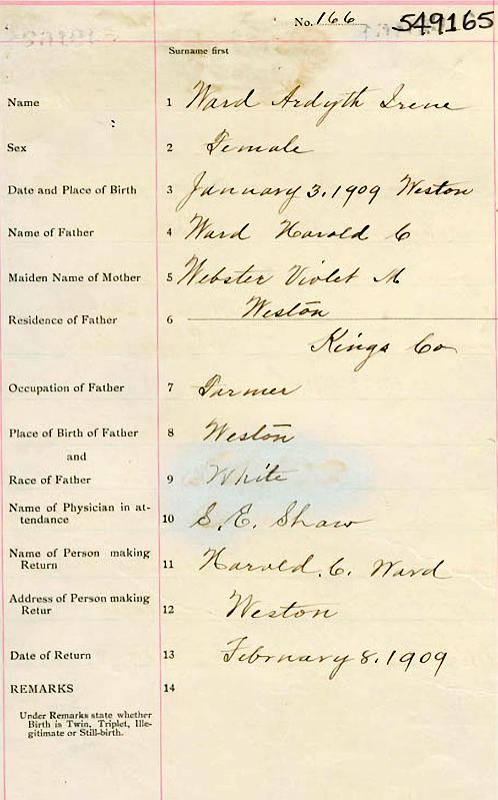 No. 166 549165
Surname first
Name 1 Ward Ardyth Irene
Sex 2 Female
Date and Place of Birth 3 January 3. 1909 Weston
Name of Father 4 Ward Harold C
Maiden Name of Mother 5 Webster Violet M
Residence of Father 6 Weston
Kings Co
Occupation of Father 7 Farmer
Place of Birth of Father 8 Weston
and
Race of Father 9 White
Name of Physician in at-
tendance 10 S. E. Shaw
Name of Person making
Return 11 Harold. C. Ward
Address of Person making
Retur 12 Weston
Date of Return 13 February 8. 1909
REMARKS 14
Under Remarks state whether
Birth is Twin, Triplet, Ille-
gitimate or Still-birth.